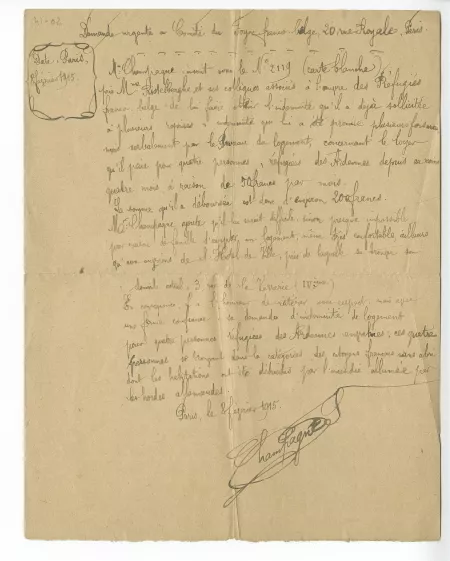 Demande urgente au Comité du Foyer franco-belge, 20 rue Royale, Paris
Date. Paris,
8 février 1915.
Mr Champagne, inscrit sous le No 2119 (carte blanche)
prie Mme et ses collègues associés à l'œuvre des Réfugiés
franco-belge de lui faire l'indemnité qu'il a déjà sollicitée
à plusieurs reprises, indemnité qui lui a été promise plusieurs fois
verbalement par le Bureau du logement, concernant le loyer
qu'il paie pour quatre personnes, réfugiées des Ardennes depuis
quatre mois, à raison de 50 francs par mois.
La somme qu'il a déboursée est donc d'environ 200 francs.
Mr Champagne ajoute qu'il lui serait difficile, sinon presque impossible
pour raison de famille d'accepter un logement, même très confortable, ailleurs
qu'aux environs de l'Hôtel de Ville, près de laquelle se trouve son
actuel, 3 rue de la Verrerie (IVème)
En conséquence, il a l'honneur de
une demande d'indemnité de logement
pour quatre personnes réfugiées des Ardennes ; ces quatre
personnes se trouvent dans la catégorie des citoyens français sans abri
dont les habitations ont été détruites par l'incendie allumé par
les hordes allemandes.
Paris, le 8 février 1915.
Champagne